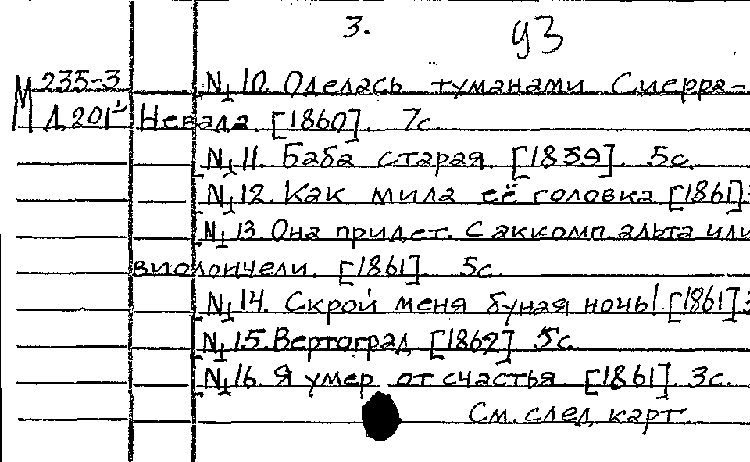 3. 43
М 235-3 № 10. Оделась туманами Сиерра-
Д 201² Невада. [1860]. 7с.
№ 11. Баба старая. [1859]. 5с.
№ 12. Как мила её головка [1861]
№ 13. Она придет. С аккомп альта или
виолончели. [1861]. 5с.
№ 14. Скрой меня бурная ночь! [1861]
№ 15. Вертоград [1862] 5с.
№ 16. Я умер от счастья. [1861]. 3с.
См. след. карт.